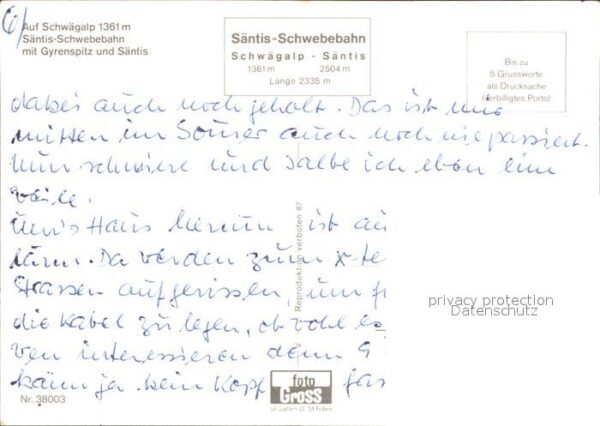 6)
Auf Schwägalp 1361 m
Säntis-Schwebebahn
mit Gyrenspitz und Säntis
Säntis-Schwebebahn
Schwägalp - Säntis
1361 m 2504 m
Länge 2335 m
Bis zu
5 Grussworte
als Drucksache
(verbilligtes Porto)
dabei auch noch geholt. Das ist uns
mitten im Sommer auch noch nie passiert.
Nun schmiere und salbe ich eben eine
Weile.
Um's Haus herum ist
Lärm. Da werden zum x-te
Strassen aufgerissen, um
die Kabel zu legen, obwohl es
wen interessieren denn
kann ja kein Kopf fas
Reproduktion verboten 87
privacy protection
Datenschutz
foto
Gross
St. Gallen
Nr. 38003